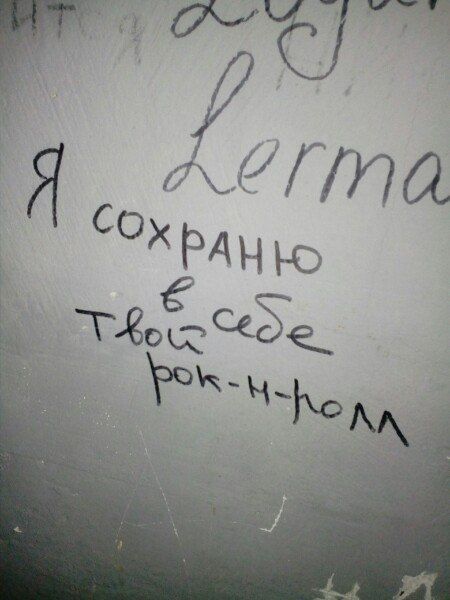 Lerma
Я сохраню
в себе
твой
рок-н-ролл